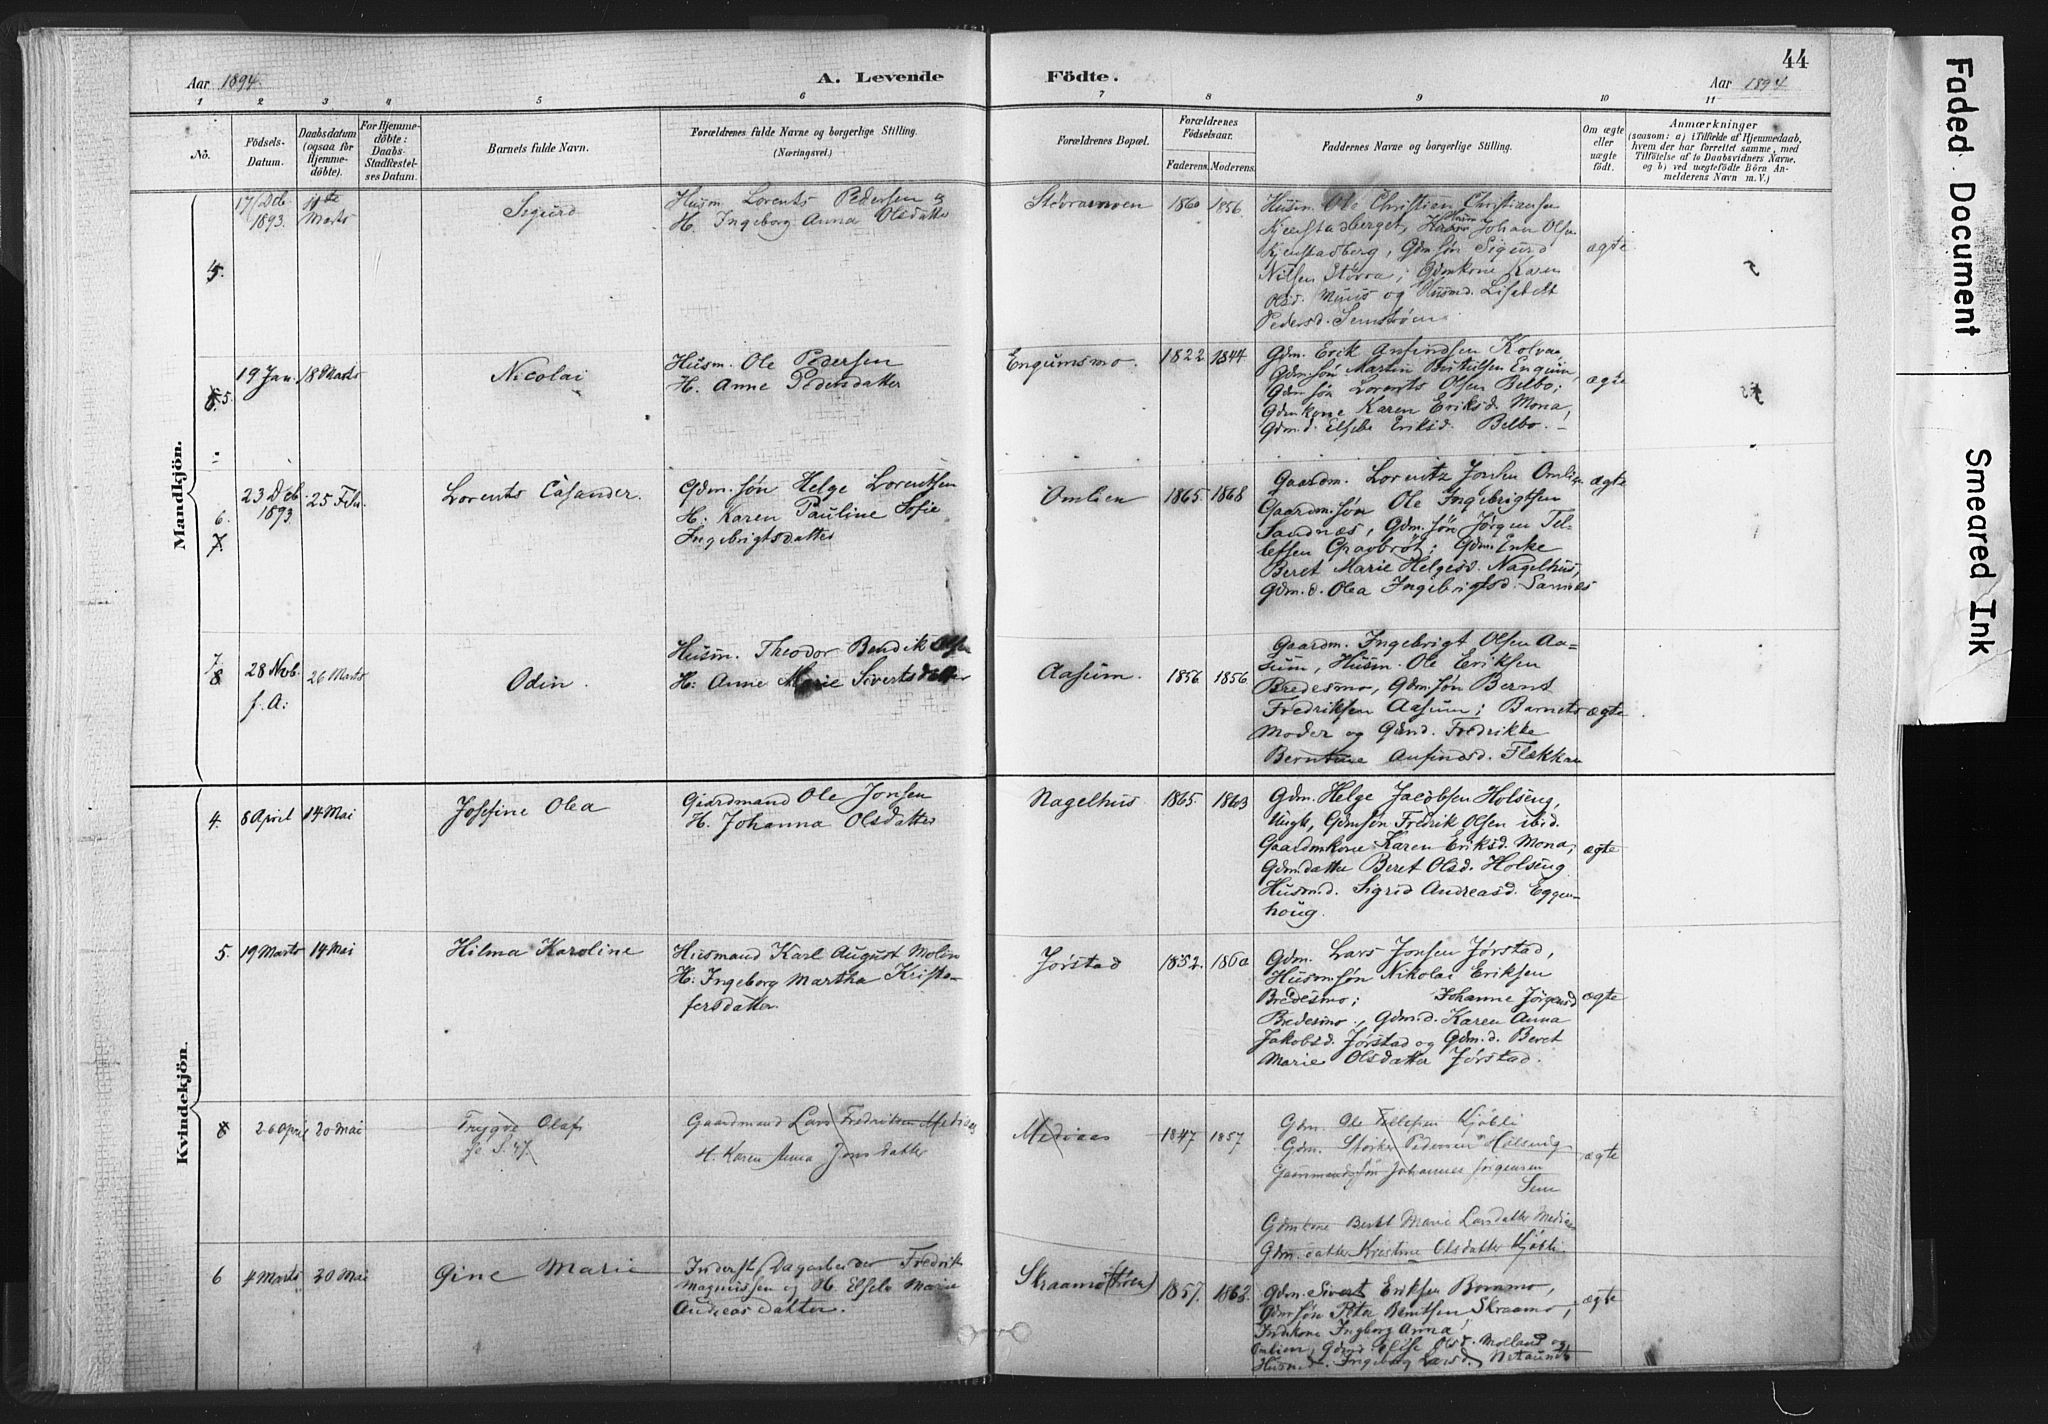 44
Aar 1894.
A. Levende Födte.
Aar 1894
1 2 3 4 5 6 7 8 9 10 11
No.
Födsels-
Datum.
Daabsdatum
(ogsaa for
Hjemme-
döbte).
For Hjemme-
döbte:
Daabs-
Stadfæstel-
ses Datum.
Barnets fulde Navn.
Forældrenes fulde Navne og borgerlige Stilling.
(Næringsvei.)
Forældrenes Bopæl.
Forældrenes
Födselsaar.
Faderens. Moderens.
Faddernes Navne og borgerlige Stilling.
Om ægte
eller
uægte
födt.
Anmærkninger
(saasom: a) i Tilfælde af Hjemmedaab,
hvem der har forrettet samme, med
Tilföielse af to Daabsvidners Navne.
og b) ved uægtefödte Börn An-
melderens Navn m. V.)
Mandkjön.
17/Deb
1893.
11te
Marts
Sigurd
Husm. Lorents Pedersen &
H. Ingeborg Anna Olsdatter
1860 1856.
Husm. Ole Christian Christiansen
Kjenstadberget, Johan Olsen
Kjenstadberg, Gdm. søn Sigurd
Nilsen Storra; Gdmkone Karen
Olsd. og Husmd. Lisabet
Pedersd.
ægte
5.
19 Jan. 18 Marts
Nicolai
Husm. Ole Pedersen
H. Anne Pedersdatter
Engumsmo. 1822 1844
Gdm. Erik Anfindsen
Gdm. søn Martin Engum,
Gdm søn Lorents Olsen Belbo;
Gdmkone Karen Eriksd. Mona,
Gdm.d. Elsebe Eriksd. Belbo.
ægte
6.
7
23 Deb.
1893.
25 Feb.
Lorents Casander.
Gdm. søn Helge Lorentsen
H. Karen Pauline Sofie
Ingebrigtsdatter
Omlien 1865. 1868
Gaardm. Lorentz Jonsen Omlien
Gaardm. søn Ole Ingebrigtsen
Sandnæs, Gdm. søn Jørgen Tel-
lefsen Gravbrøt; Gdm. Enke
Beret Marie Helgesd. Nagelhus,
Gdm. d. Olea Ingebrigtsd. Sannes
ægte
7
8
28 Nob.
f. A:
26 Marts
Odin.
Husm. Theodor Bendik Olsen
H: Anne Marie Sivertsdatter
Aasum. 1856 1856
Gaardm. Ingebrigt Olsen Aa-
sum, Husm. Ole Eriksen
Bredesmo, Gdm. søn Bernt
Fredriksen Aasum; Barnets
Moder og Gdmd. Fredrikke
Berntine Anfinnsd. Flekkan
ægte
Kvindekjön.
4. 8 April 14 Mai
Josefine Olea
Gaardmand Ole Jonsen
H. Johanna Olsdatter
Nagelhus 1865. 1863
Gdm. Helge Jacobsen Holseng,
Ungk, Gdmsøn Fredrik Olsen ibid.
Gaardmkone Karen Eriksd. Mona;
Gdm. datter Beret Olsd. Holseng
Husm.d. Sigrid Andreasd. Eggen-
houg.
ægte
5. 19 Marts 14 Mai
Hilma Karoline
Husmand Karl August Molin
H. Ingeborg Martha Kristo-
fersdatter
Jørstad 1852. 1860
Gdm. Lars Jonsen Jørstad,
Husm. søn Nikolai Eriksen
Bredesmo; Johanne Jørgensd
Bredesmo, Gdm.d. Karen Anna
Jakobsd. Jørstad og Gdm. d. Beret
Marie Olsdatter Jørstad.
ægte
8 26 April 20 Mai
Trygve Olaf
Gaardmand Lars Fredriksen Mediaas
H. Karen Anna Jonsdatter
Mediaas 1847 1857
Gdm. Ole Tellefsen Kjøbli
Gdm. Størker Pedersen Helsing
Gaardmandssøn Johannes Jørgensen
Sem
Gdmkone Beret Marie Larsdatter Mediaas
Gdm. datter Kristine Olsdatter Kjøbli.
ægte
6 4 Marts 20 Mai
Gine Marie
Inderst/Dagarbeider Fredrik
Magnussen og H. Elsebe Marie
Andreasdatter.
Skraamo 1857. 1863.
Gdm. Sivert Eriksen Bormo,
Gdm søn Peter Berntsen Skraamo,
Indkone Ingborg Anna
Omlien, Gdmd Elise Olsd. Molland og
Husmd. Ingeborg Larsd.
ægte
Faded Document
Smeared Ink